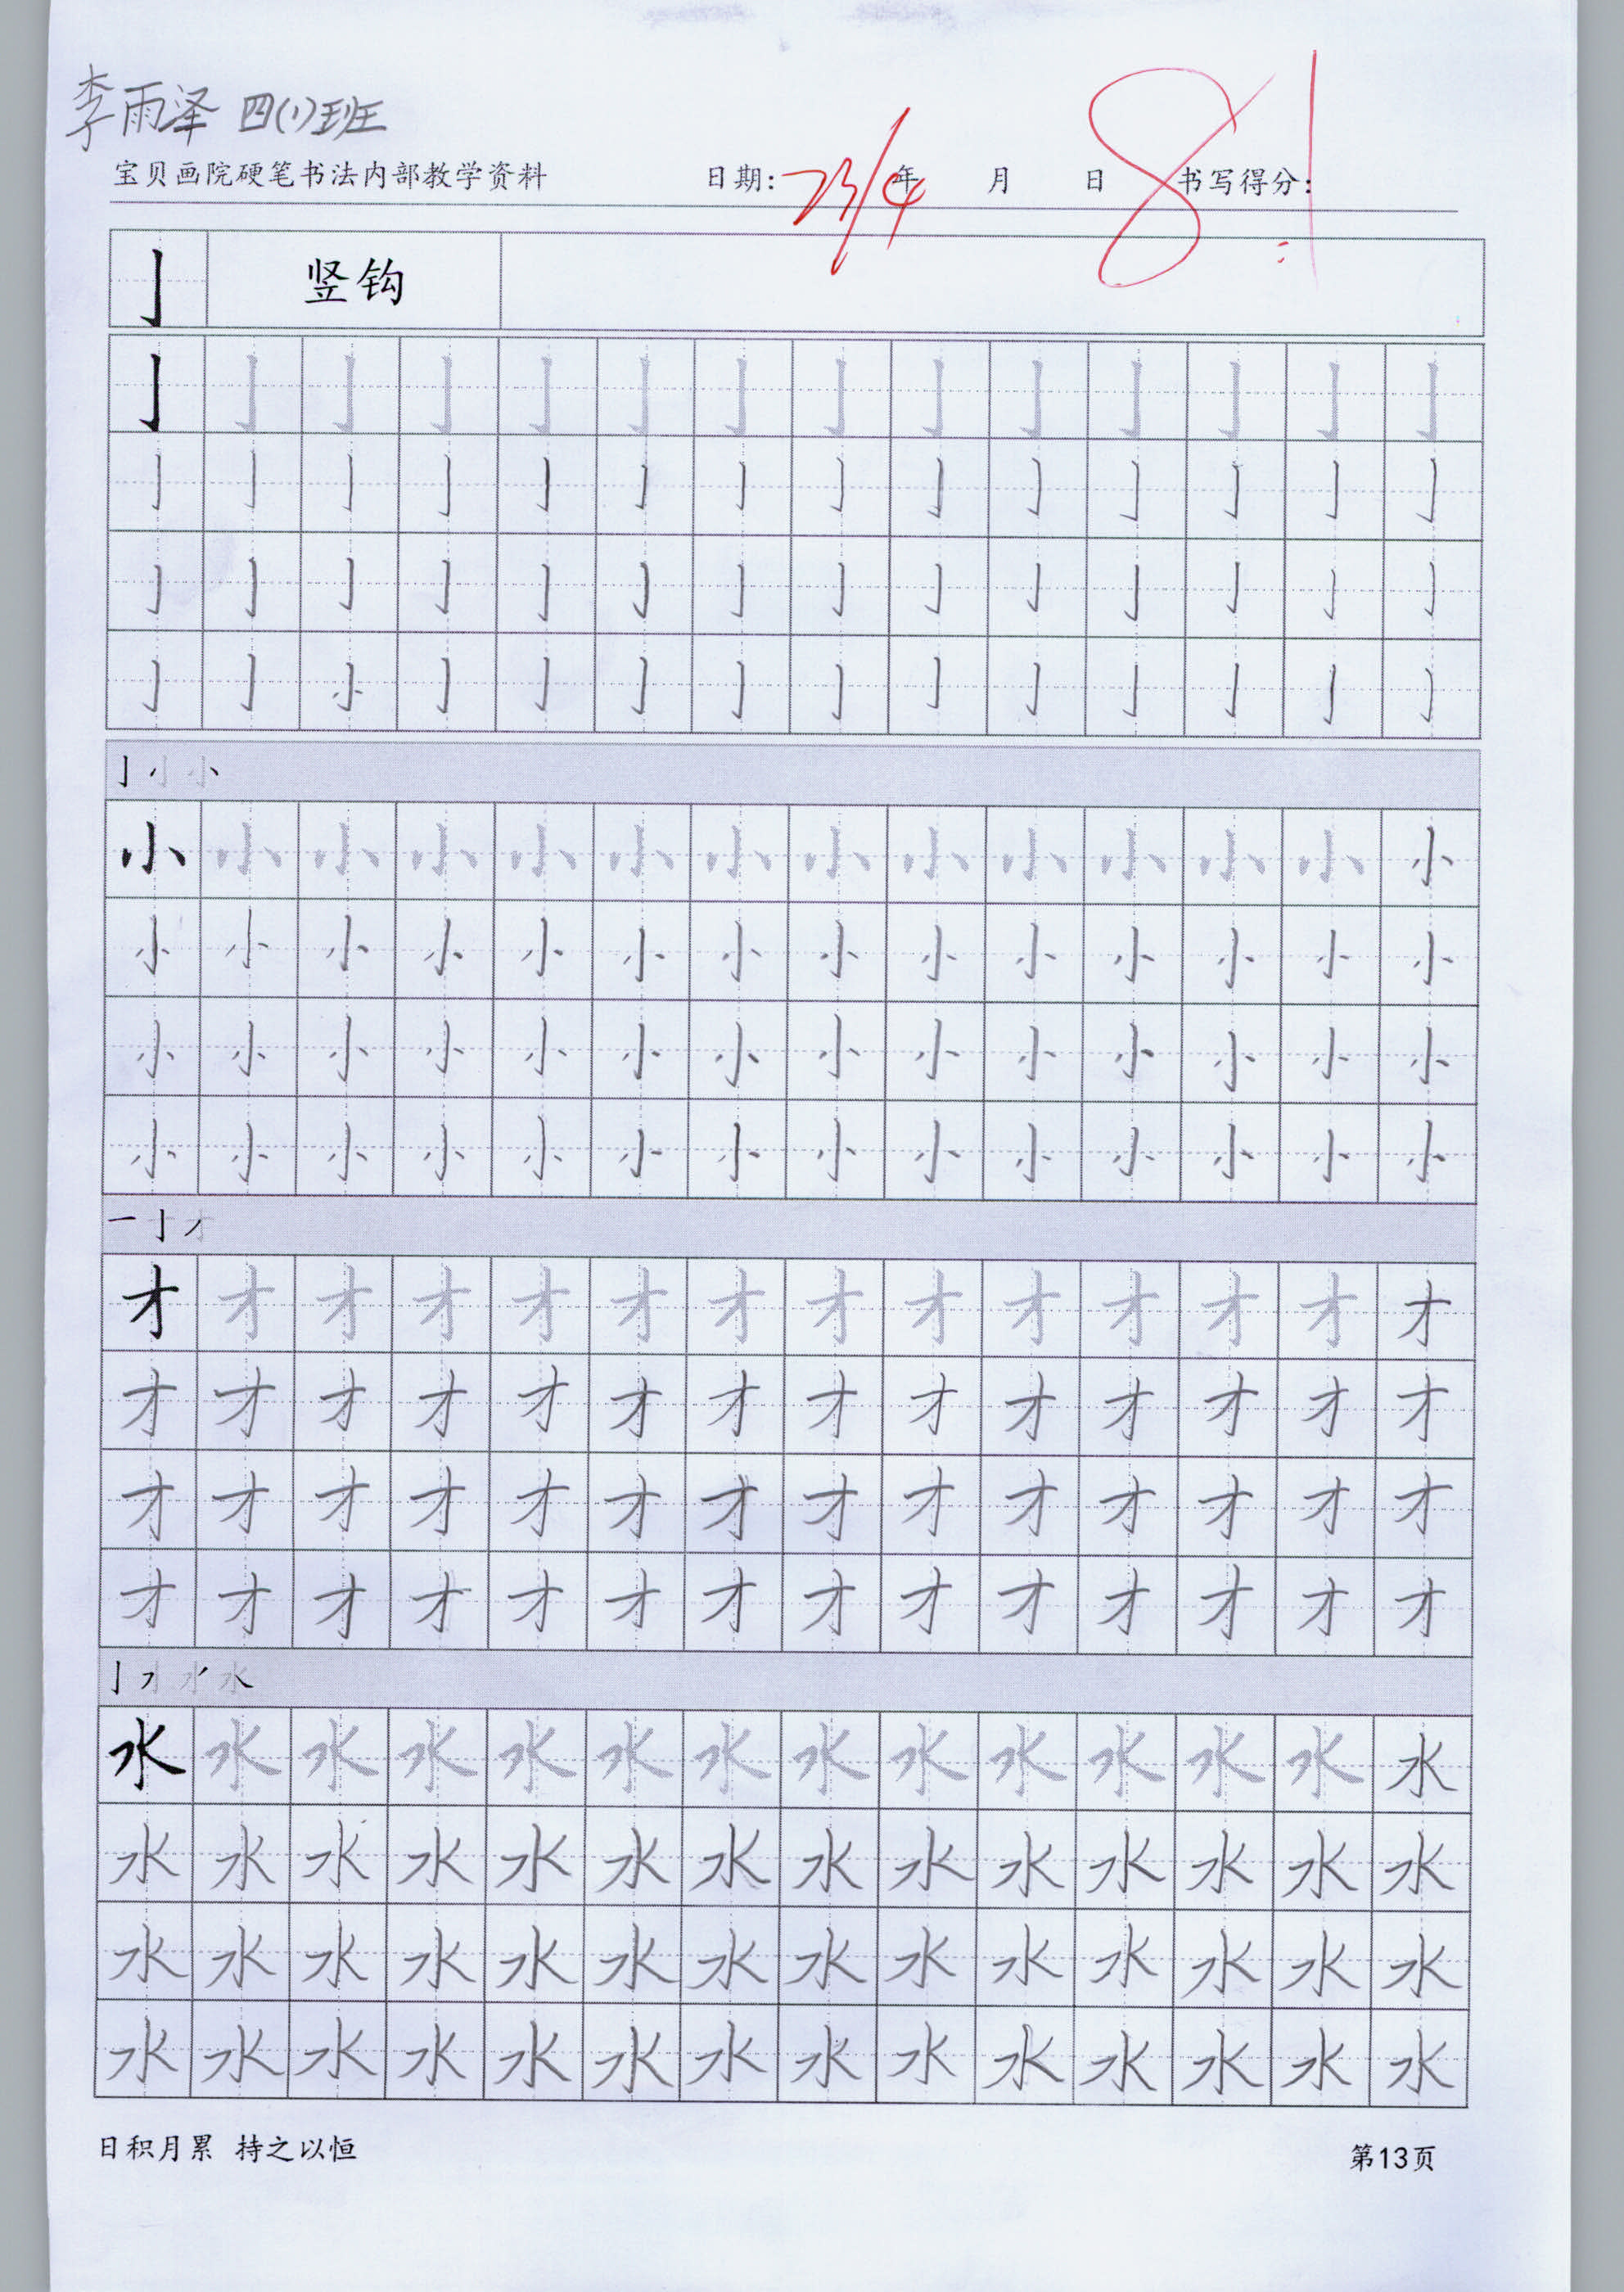 李雨泽 四(1)班
宝贝画院硬笔书法内部教学资料 日期: 23/4 年 月 日 书写得分: 8!
亅 竖钩
亅 亅 亅 亅 亅 亅 亅 亅 亅 亅 亅 亅 亅 亅
亅 亅 亅 亅 亅 亅 亅 亅 亅 亅 亅 亅 亅 亅
亅 亅 亅 亅 亅 亅 亅 亅 亅 亅 亅 亅 亅 亅
亅 亅 小 亅 亅 亅 亅 亅 亅 亅 亅 亅 亅 亅
亅 小 小
小 小 小 小 小 小 小 小 小 小 小 小 小 小
小 小 小 小 小 小 小 小 小 小 小 小 小 小
小 小 小 小 小 小 小 小 小 小 小 小 小 小
小 小 小 小 小 小 小 小 小 小 小 小 小 小
一 亅 才
才 才 才 才 才 才 才 才 才 才 才 才 才 才
才 才 才 才 才 才 才 才 才 才 才 才 才 才
才 才 才 才 才 才 才 才 才 才 才 才 才 才
才 才 才 才 才 才 才 才 才 才 才 才 才 才
亅 水 水 水
水 水 水 水 水 水 水 水 水 水 水 水 水 水
水 水 水 水 水 水 水 水 水 水 水 水 水 水
水 水 水 水 水 水 水 水 水 水 水 水 水 水
水 水 水 水 水 水 水 水 水 水 水 水 水 水
日积月累 持之以恒 第13页